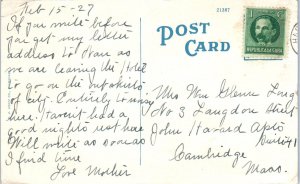 Feb 15-27
If you write before
you get my letter
address to Stare as
we are leaving this Hotel
to go on the outskirts
of city. Entirely to noisy
here. Havent had a
good nights rest here
Will write as soon as
I find time
Love Mother
21287
POST
CARD
REPUBLICA DE CUBA
Mrs Wm Glenn Long
No 3 Langdon Street
John Harvard Apts
Suite 41
Cambridge
Mass.